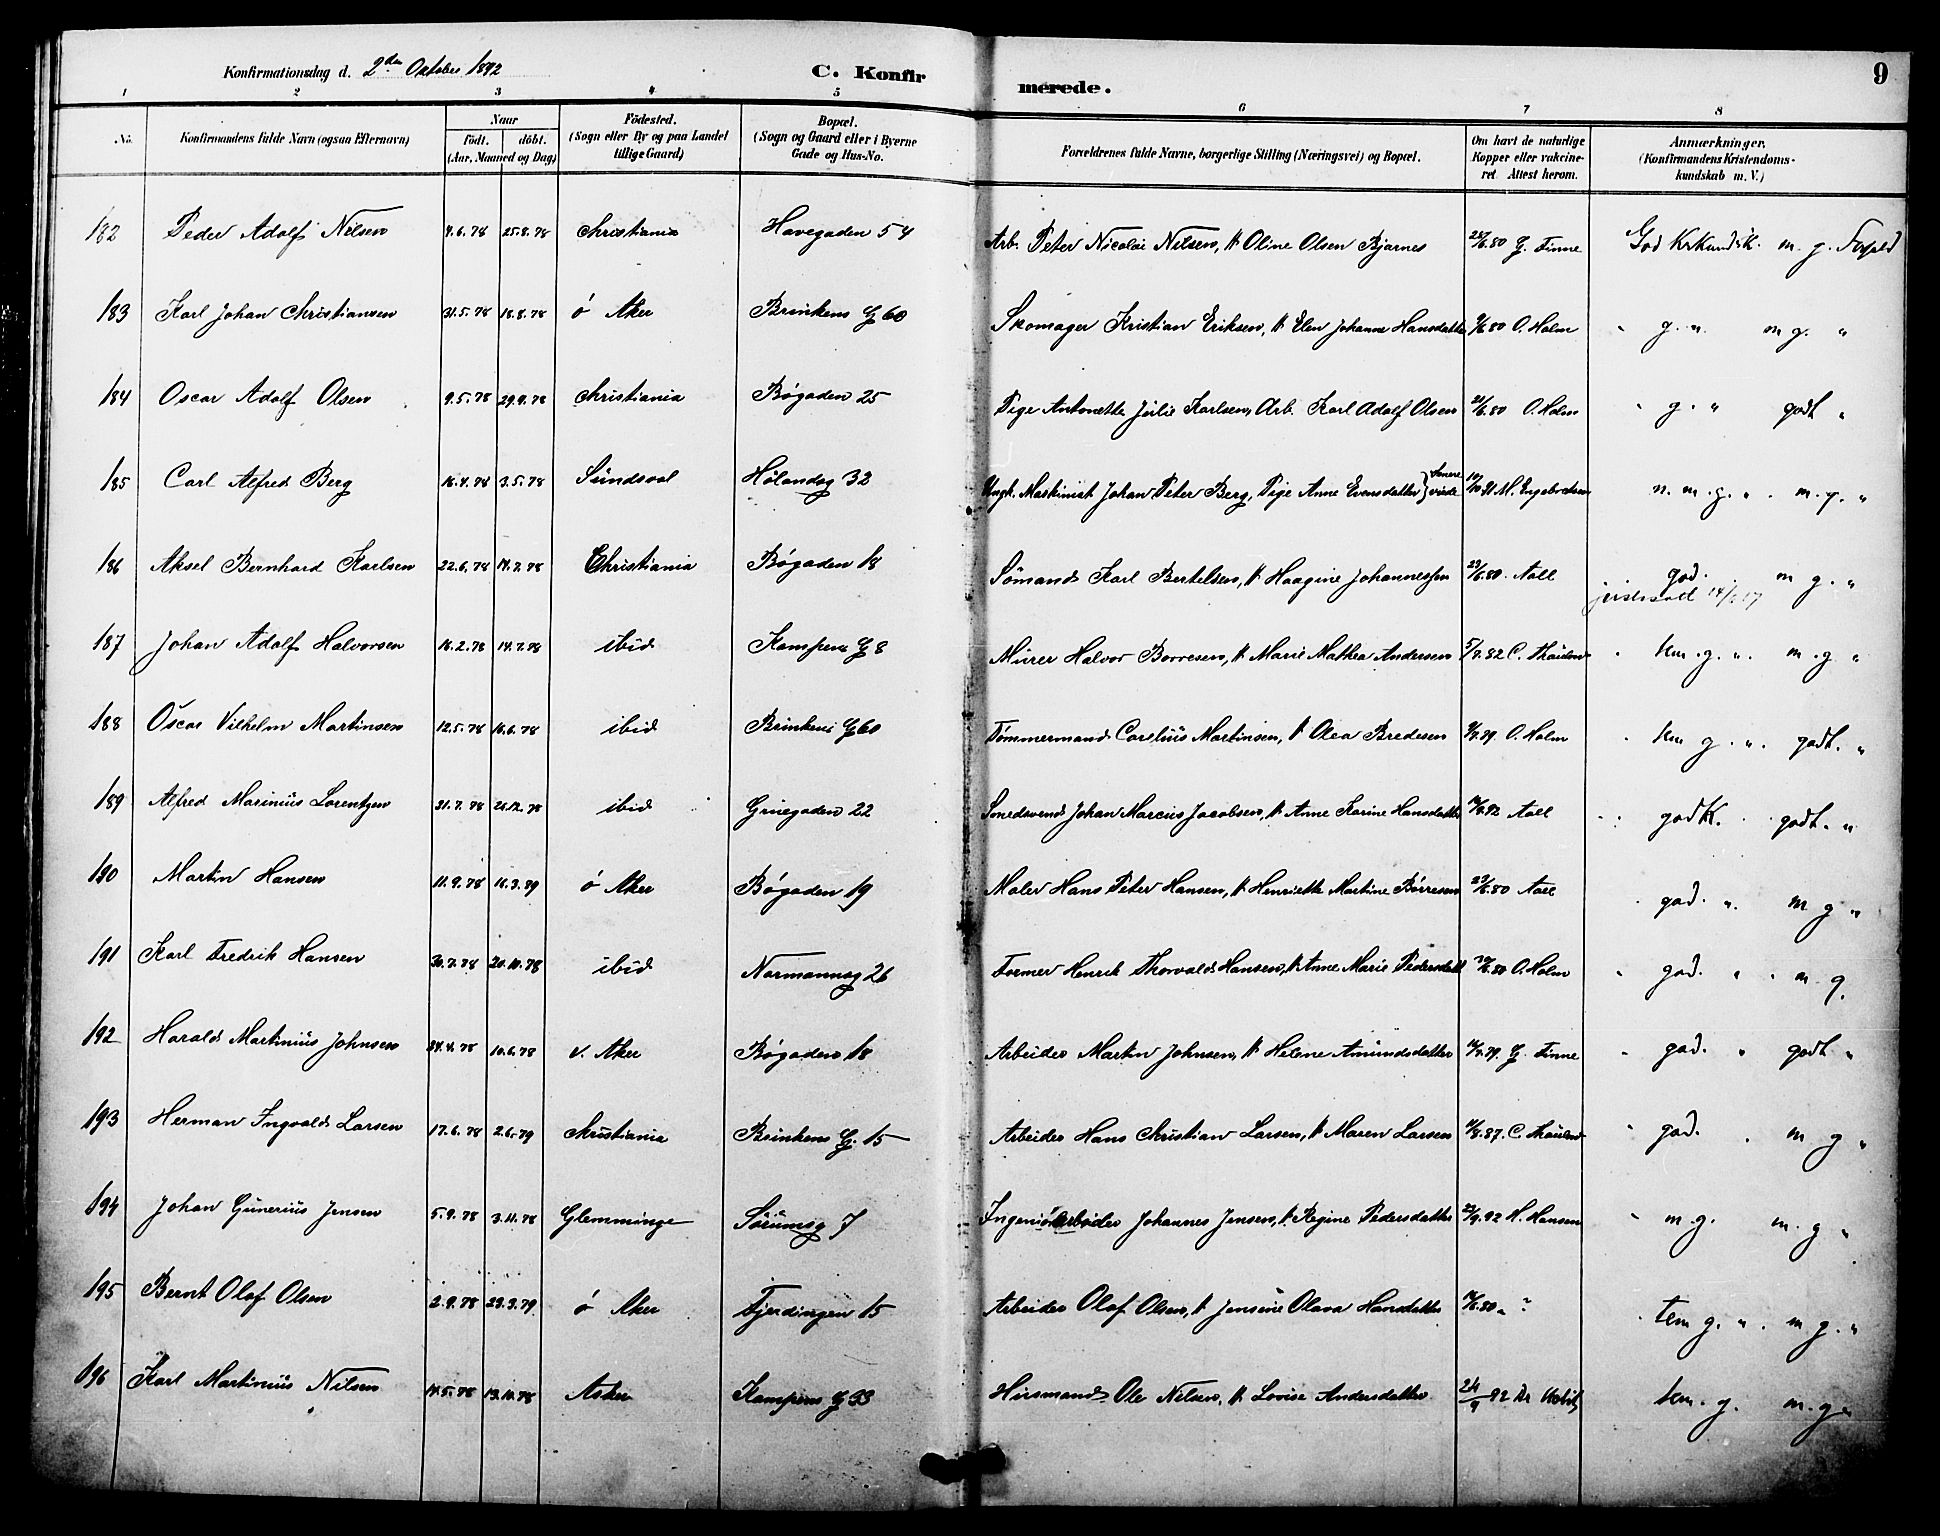 Konfirmationsdag d. 2den Oktober 1892 C. Konfirmerede. 9
1 2 3 4 5 6 7 8
No. Konfirmandens fulde Navn (ogsaa Efternavn) Naar födt. döbt. (Aar, Maaned og Dag) Födested. (Sogn eller By og paa Landet tillige Gaard) Bopæl. (Sogn og Gaard eller i Byerne Gade og Hus-No. Forældrenes fulde Navne, borgerlige Stilling (Næringsvei) og Bopæl. Om havt de naturlige Kopper eller vakcineret. Attest herom. Anmærkninger. (Konfirmandens Kristendomskundskab m. V.)
182 Peder Adolf Nilsen 25.8.78 Christiania Havegaden 54 Arb. Peter Nicolai Nilsen, & Oline Olsen Bjarnes G. Finne God Krkundsk. m. g. Forhold
183 Karl Johan Christiansen 31.5.78 18.8.78 ö Aker Brinkens G 60 Skomager Kristian Eriksen, & Elen Johanne Hansdatter O. Holm " g. " m g. "
184 Oscar Adolf Olsen 9.5.78 29.9.78 Christiania Bøgaden 25 Pige Antonette Julie Karlsen, Arb. Karl Adolf Olsen 21/6.80 O. Holm " g. " godt "
185 Carl Alfred Berg 16.4.78 3.5.78 Sundsval Hølandsg 32 Ungk. Maskinist Johan Peter Berg, Pige Anne Evensdatter } senere viede M. Engebretsen n. m. g. " . m. g. "
186 Aksel Bernhard Karlsen 22.6.78 14.7.78 Christiania Bøgaden 18 Sømand Karl Bertelsen, & Haagine Johannessen 23/6.80. Aall god. m g. "
187 Johan Adolf Halvorsen 16.2.78 14.7.78 ibid Kampens G 8 Murer Halvor Borresen, & Marie Mathea Andersen 5/7.82 C. Thaulow km. g. ". m. g "
188 Oscar Vilhelm Martinsen 12.5.78 16.6.78 ibid Brinkens G 60 Tømmermand Carelius Martinsen, & Olea Bredesen O. Holm km g. ". godt. "
189 Alfred Marinius Lorentzen 31.7.78 26.12.78 ibid Gruegaden 22 Smedsvend Johan Marcus Jacobsen, & Anne Karine Hansdatter Aall godt. godt. "
190 Martin Hansen 11.9.78 16.3.79 ö Aker Bøgaden 19 Maler Hans Peter Hansen, & Henriette Martine Börresen 23/6.80 Aall god. ". m g "
191 Karl Fredrik Hansen 30.7.78 20.10.78 ibid Normannsg 26 Former Henrik Thorvald Hansen, & Anne Marie Pedersdatt O. Holm god. " . m. g.
192 Harald Martinius Johnsen 10.6.78 v. Aker Bøgaden 18 Arbeider Martin Johnsen, & Helene Amundsdatter G. Finne god. " godt "
193 Herman Ingvald Larsen 17.6.78 2.6.79 Christiania Brinkens G. 15 Arbeider Hans Christian Larsen, & Maren Larsen C. Thaulow god. . m g "
194 Johan Gunerius Jensen 5.9.78 3.11.78 Glemminge Sörumsg 7 Ingeniörarbeider Johannes Jensen, & Regine Pedersdatter H. Hansen " m. g. m. g "
195 Bernt Olaf Olsen 2.9.78 29.3.79 ö Aker Fjerdingen 15 Arbeider Olaf Olsen, & Jensine Olava Hansdatter ? tem g. ". m g. "
196 Karl Martinius Nilsen 14.5.78 13.10.78 Asker Kampens G 33 Husmand Ole Nilsen, & Lovise Andersdatter 24/9 92 Dr km. g. m. g "